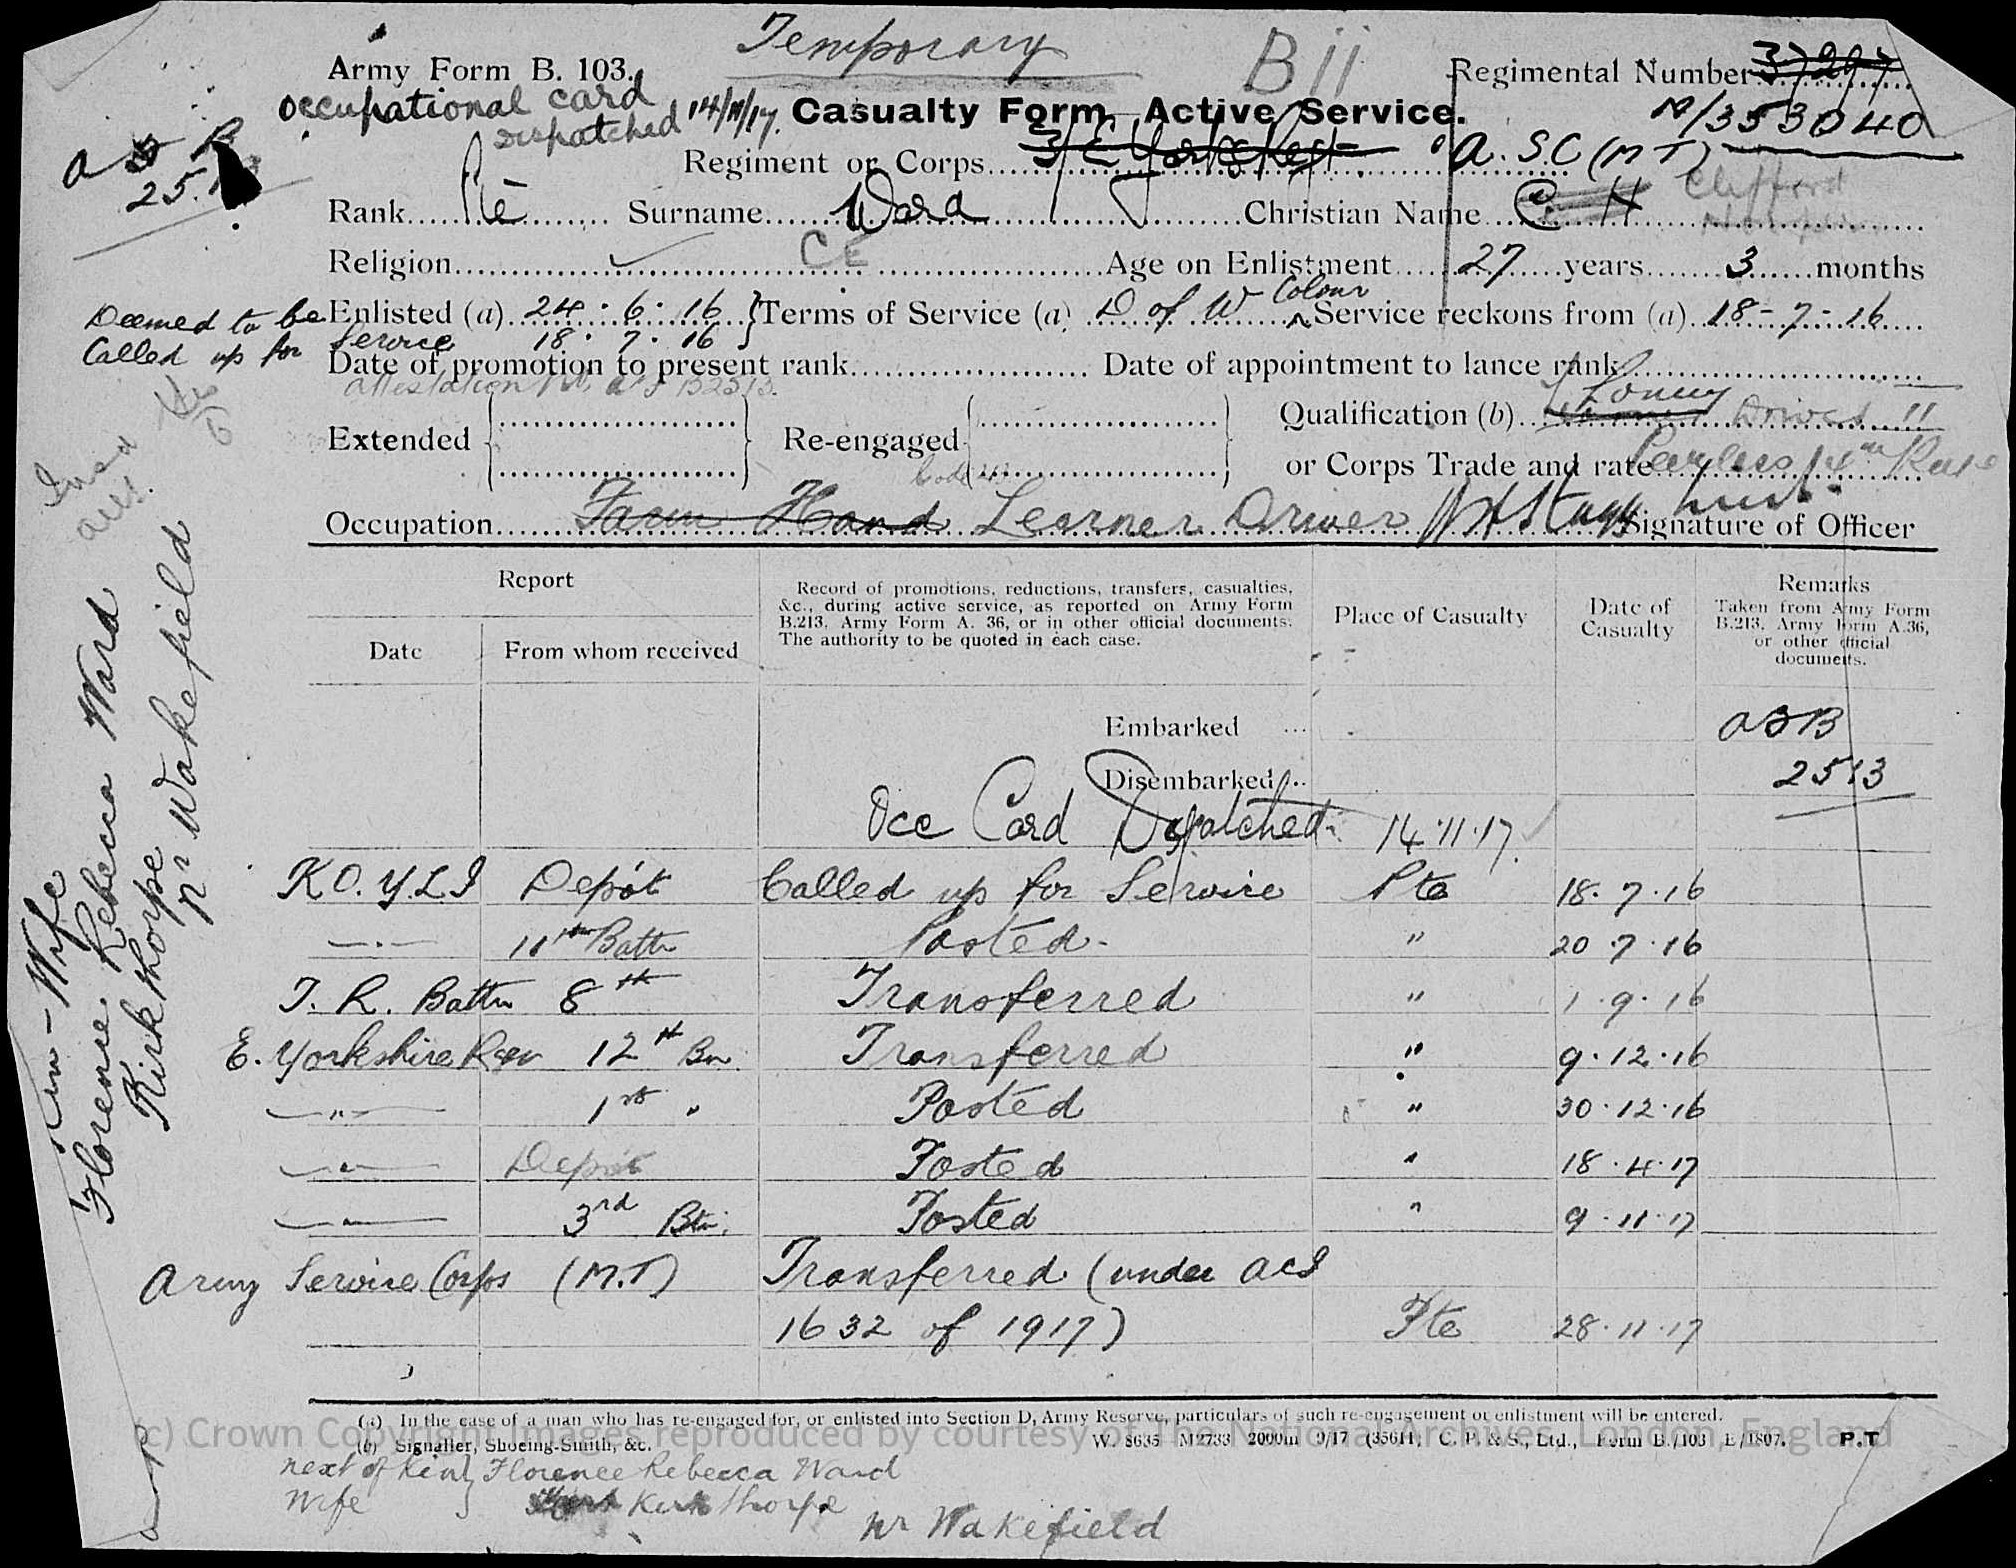 Temporary
B ii
Army Form B. 103.
Regimental Number 37297
Occupational card
dispatched 14/11/17.
Casualty Form Active Service.
M/353040
Regiment or Corps 3/E Yorks Regt A.S.C (MT)
Rank Pte Surname Ward Christian Name C H Clifford
Religion CE Age on Enlistment 27 years 3 months
Deemed to be Enlisted (a) 24.6.16 } Terms of Service (a) D of W Colour Service reckons from (a) 18-7-16
Called up for Service 18.7.16
Date of promotion to present rank Date of appointment to lance rank
attestation B2513.
Extended Re-engaged Qualification (b) Lorry Driver
or Corps Trade and rate Peerless Rate
Occupation Farm Hand Learner Driver Signature of Officer
Report
Date
From whom received
Record of promotions, reductions, transfers, casualties,
&c., during active service, as reported on Army Form
B.213, Army Form A. 36, or in other official documents.
The authority to be quoted in each case.
Place of Casualty
Date of
Casualty
Remarks
Taken from Army Form
B.213, Army Form A.36,
or other official
documents.
Embarked ...
Disembarked ...
2513
Occ Card Dispatched. 14.11.17.
K.O.Y.L.I Depôt Called up for Service Pte 18.7.16
—.— 11th Battn Posted. " 20.7.16
T. R. Battn 8th Transferred " 1.9.16
E. Yorkshire Regt 12th Bn Transferred " 9.12.16
—"— 1st " Posted " 30.12.16
—"— Depôt Posted " 18.4.17
—"— 3rd Btn. Posted " 9.11.17
Army Service Corps (M.T) Transferred (under ACI
1632 of 1917) Pte 28.11.17
(a) In the case of a man who has re-engaged for, or enlisted into Section D, Army Reserve, particulars of such re-engagement or enlistment will be entered.
(b) Signaller, Shoeing-Smith, &c.
W. 8635 M2733 2000m 9/17 (35611) C. P. & S., Ltd., Form B./103 E/1807.
P.T
(c) Crown Copyright Images reproduced by courtesy of The National Archives, London, England
next of kin } Florence Rebecca Ward
Wife } Kirkthorpe
nr Wakefield
Kin - Wife
Florence Rebecca Ward
Kirkthorpe
nr Wakefield